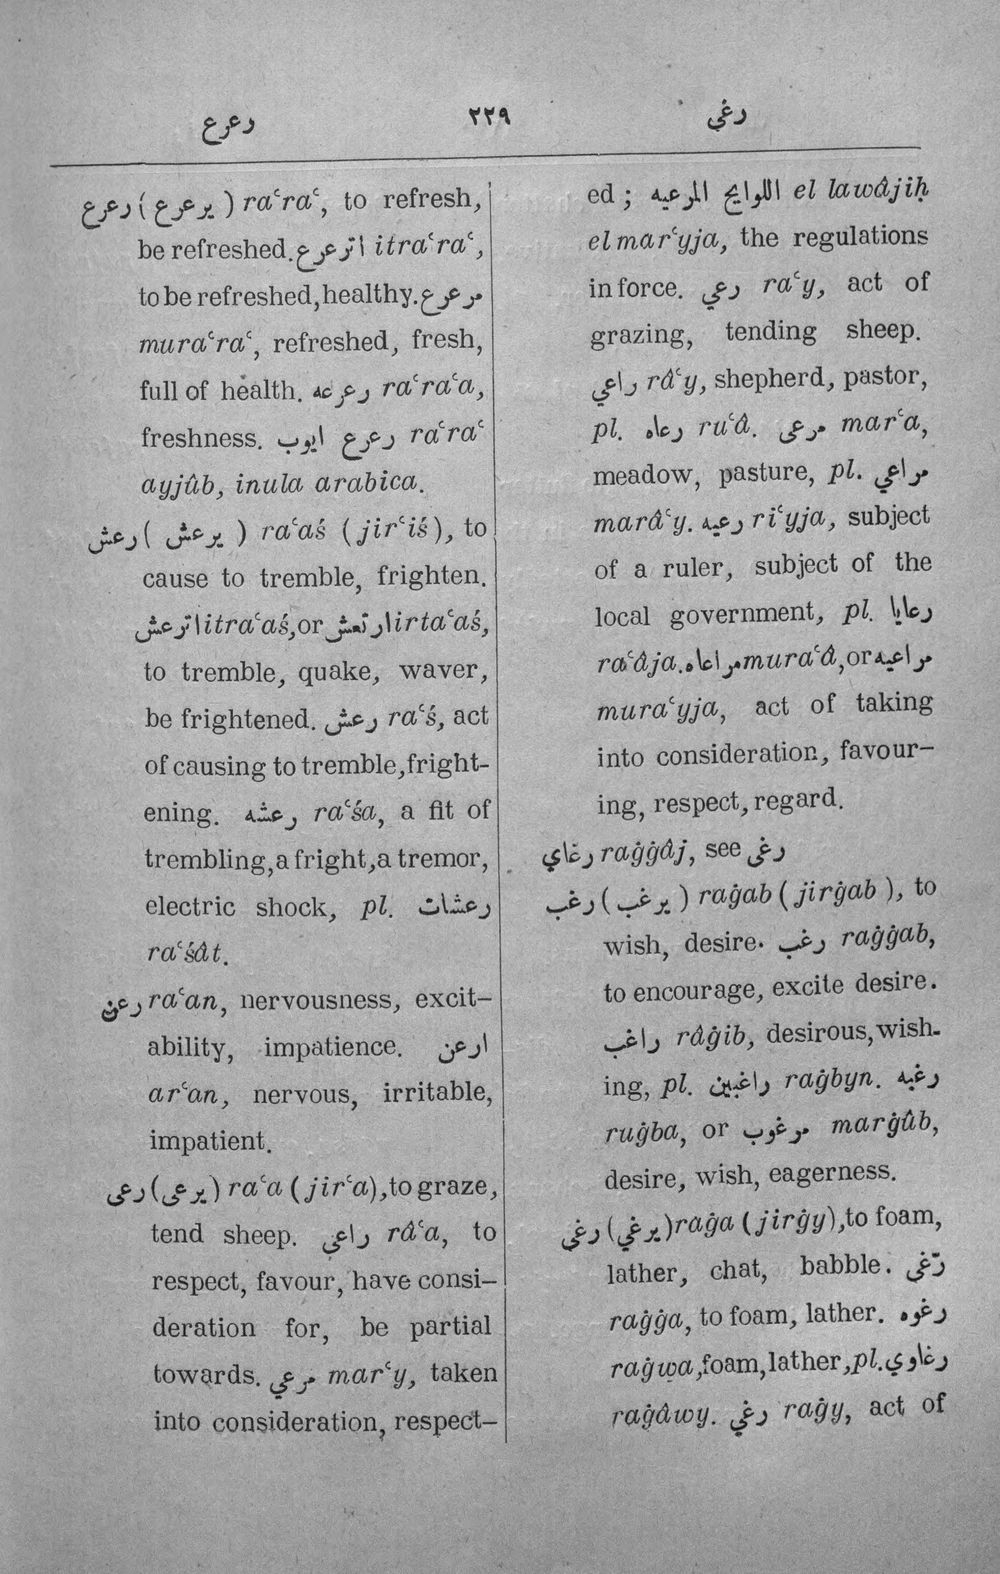 رعرع ٢٢٩ رغي
رعرع ( يرعرع ) raʿraʿ, to refresh,
be refreshed. اترعرع itraʿraʿ,
to be refreshed, healthy. مرعرع
muraʿraʿ, refreshed, fresh,
full of health. رعرعه raʿraʿa,
freshness. رعرع ايوب raʿraʿ
ayjûb, inula arabica.
رعش ( يرعش ) raʿaś (jirʿiś), to
cause to tremble, frighten.
اترعش itraʿaś, or ارتعش irtaʿaś,
to tremble, quake, waver,
be frightened. رعش raʿś, act
of causing to tremble, fright-
ening. رعشه raʿśa, a fit of
trembling, a fright, a tremor,
electric shock, pl. رعشات
raʿśât.
رعن raʿan, nervousness, excit-
ability, impatience. ارعن
arʿan, nervous, irritable,
impatient.
رعى (يرعى) raʿa (jirʿa), to graze,
tend sheep. راعى râʿa, to
respect, favour, have consi-
deration for, be partial
towards. مرعي marʿy, taken
into consideration, respect-
ed; اللوايح المرعيه el lawâjiḥ
el marʿyja, the regulations
in force. رعي raʿy, act of
grazing, tending sheep.
راعي râʿy, shepherd, pastor,
pl. رعاه ruʿâ. مرعى marʿa,
meadow, pasture, pl. مراعي
marâʿy. رعيه riʿyja, subject
of a ruler, subject of the
local government, pl. رعايا
raʿâja. مراعاه muraʿâ, or مراعيه
muraʿyja, act of taking
into consideration, favour-
ing, respect, regard.
رغاي raġġâj, see رغى
رغب ( يرغب ) raġab (jirġab), to
wish, desire. رغب raġġab,
to encourage, excite desire.
راغب râġib, desirous, wish-
ing, pl. راغبين raġbyn. رغبه
ruġba, or مرغوب marġûb,
desire, wish, eagerness.
رغى (يرغي) raġa (jirġy), to foam,
lather, chat, babble. رغّى
raġġa, to foam, lather. رغوه
raġwa, foam, lather, pl. رغاوي
raġâwy. رغي raġy, act of